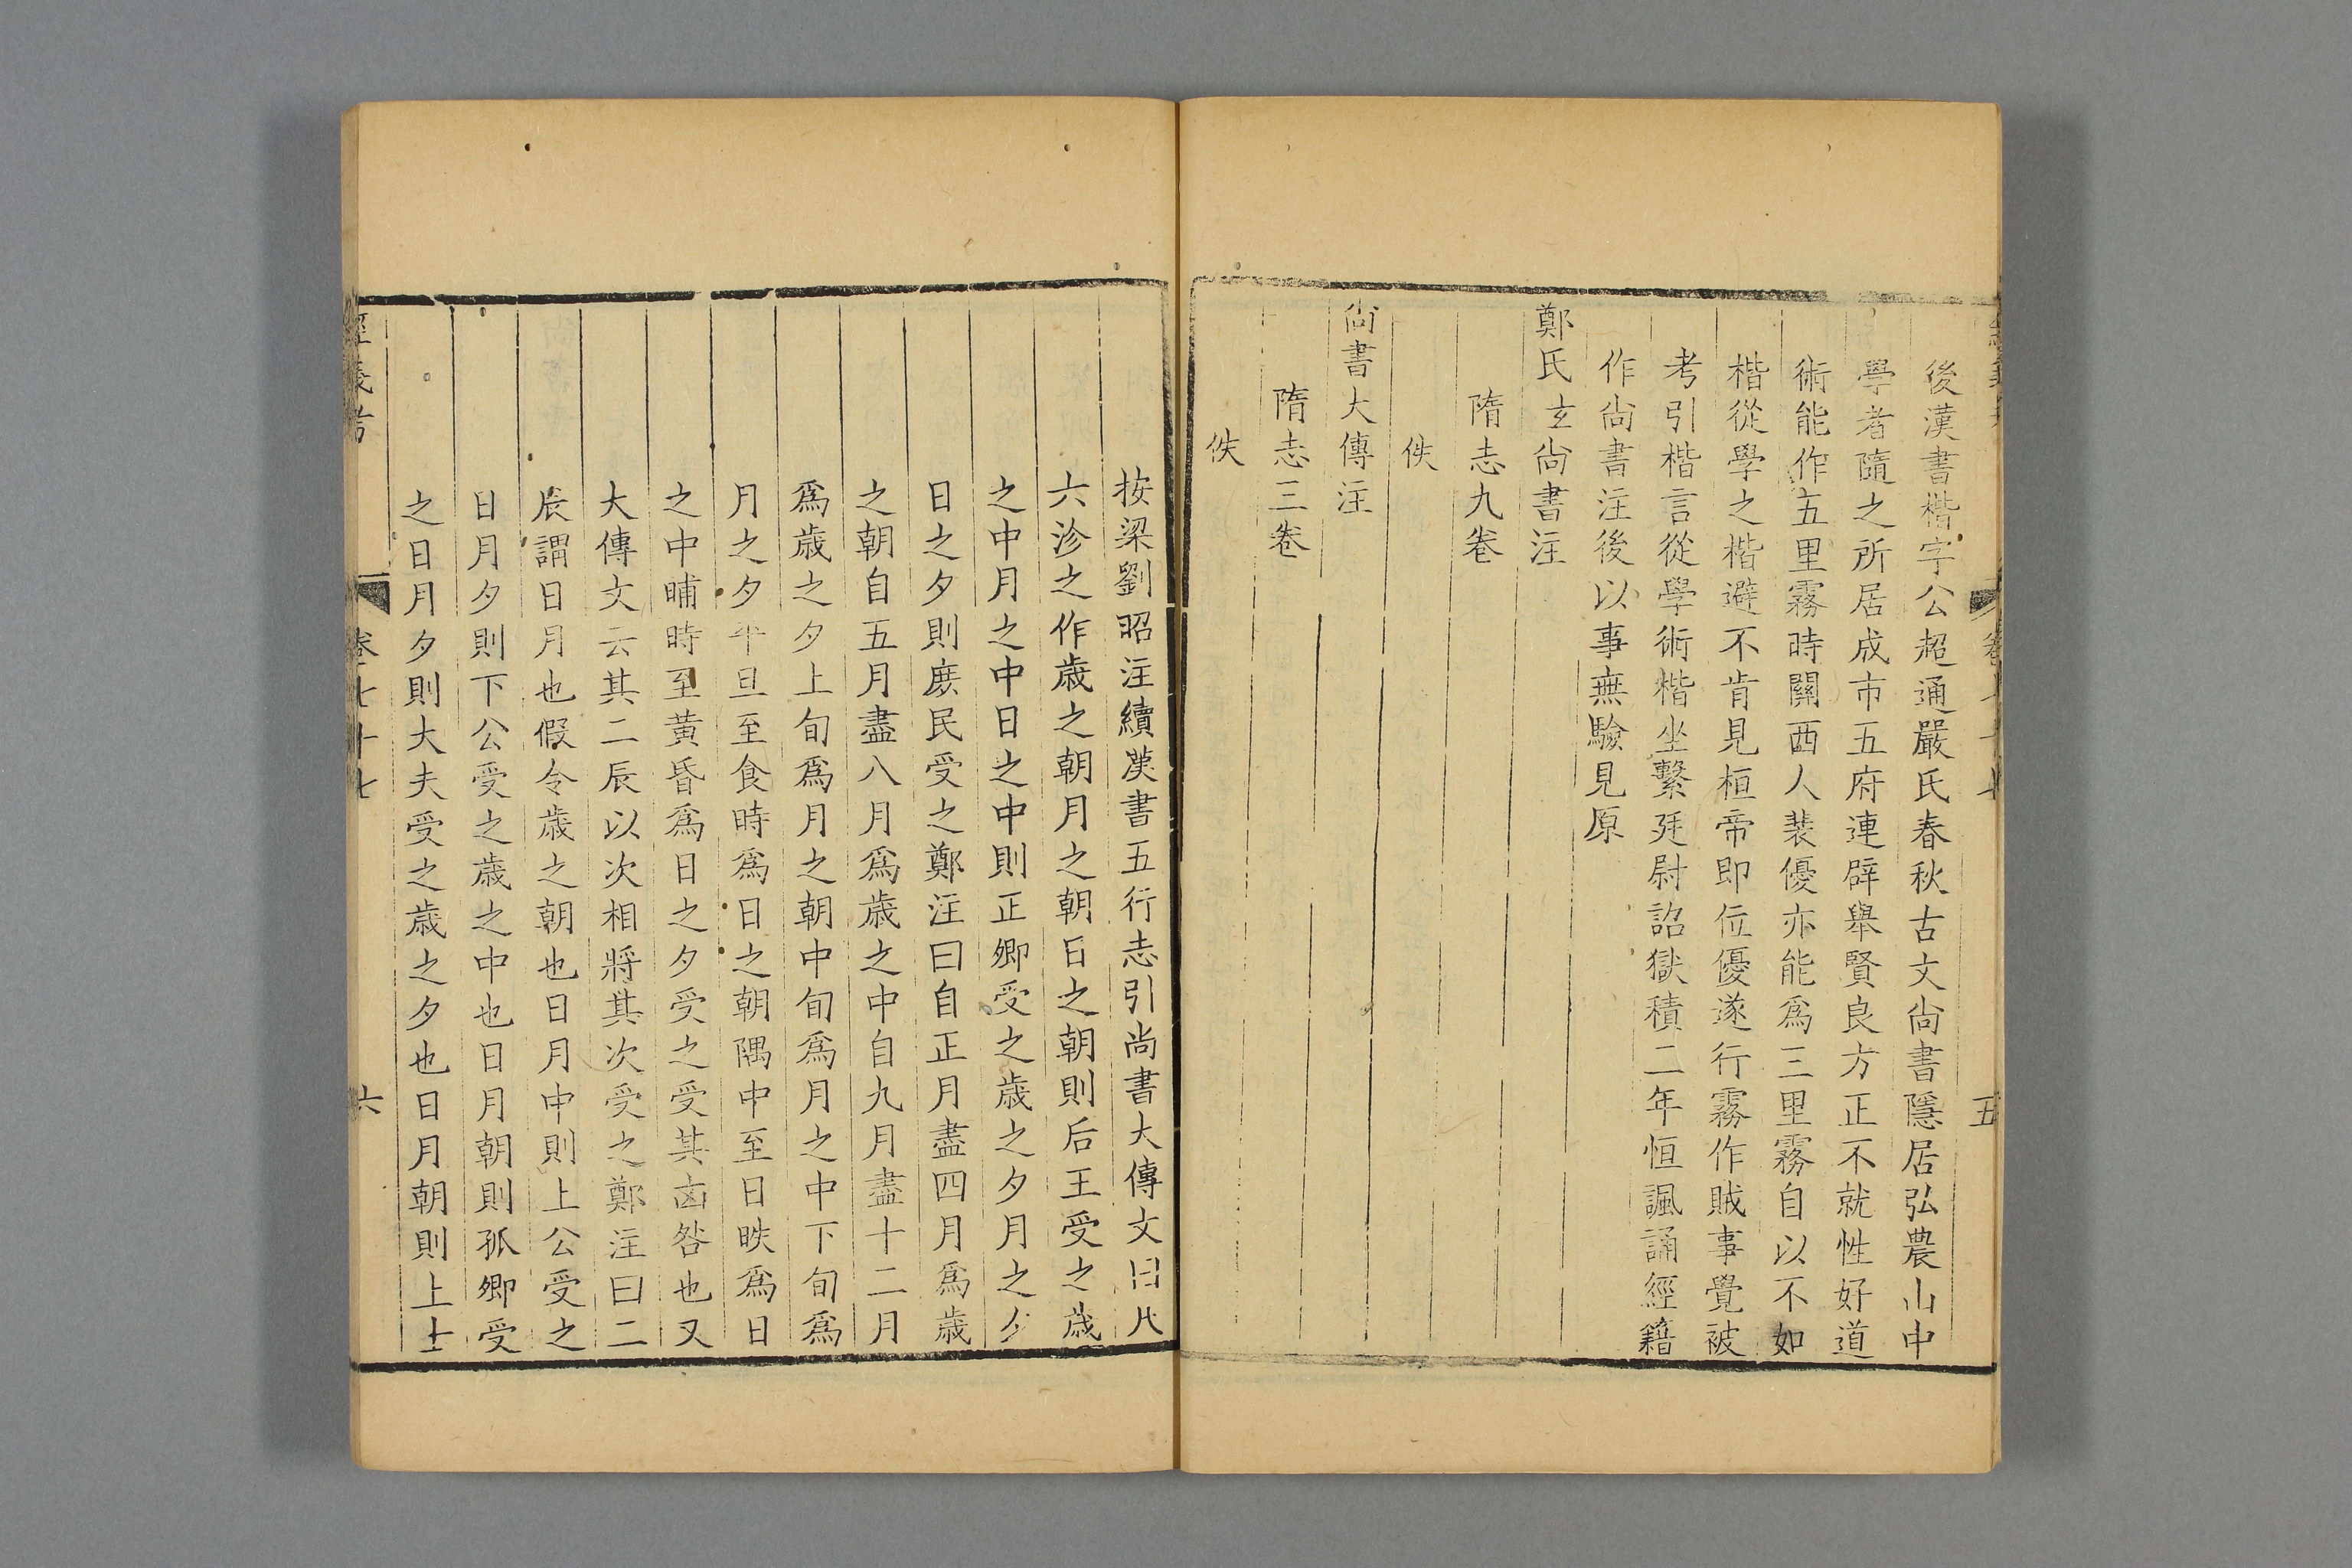 後漢書楷字公超通嚴氏春秋古文尚書隱居弘農山中
學者隨之所居成市五府連辟舉賢良方正不就性好道
術能作五里霧時關西人裴優亦能爲三里霧自以不如
楷從學之楷避不肯見桓帝即位優遂行霧作賊事覺被
考引楷言從學術楷坐繫廷尉詔獄積二年恒諷誦經籍
作尚書注後以事無驗見原
鄭氏玄尚書注
隋志九卷
佚
尚書大傳注
隋志三卷
佚
五
按梁劉昭注續漢書五行志引尚書大傳文曰凡
六沴之作歲之朝月之朝日之朝則后王受之歲
之中月之中日之中則正卿受之歲之夕月之夕
日之夕則庶民受之鄭注曰自正月盡四月爲歲
之朝自五月盡八月爲歲之中自九月盡十二月
爲歲之夕上旬爲月之朝中旬爲月之中下旬爲
月之夕平旦至食時爲日之朝隅中至日昳爲日
之中晡時至黃昏爲日之夕受之受其凶咎也又
大傳文云其二辰以次相將其次受之鄭注曰二
辰謂日月也假令歲之朝也日月中則上公受之
日月夕則下公受之歲之中也日月朝則孤卿受
之日月夕則大夫受之歲之夕也日月朝則上士
經義考 卷七十七 六